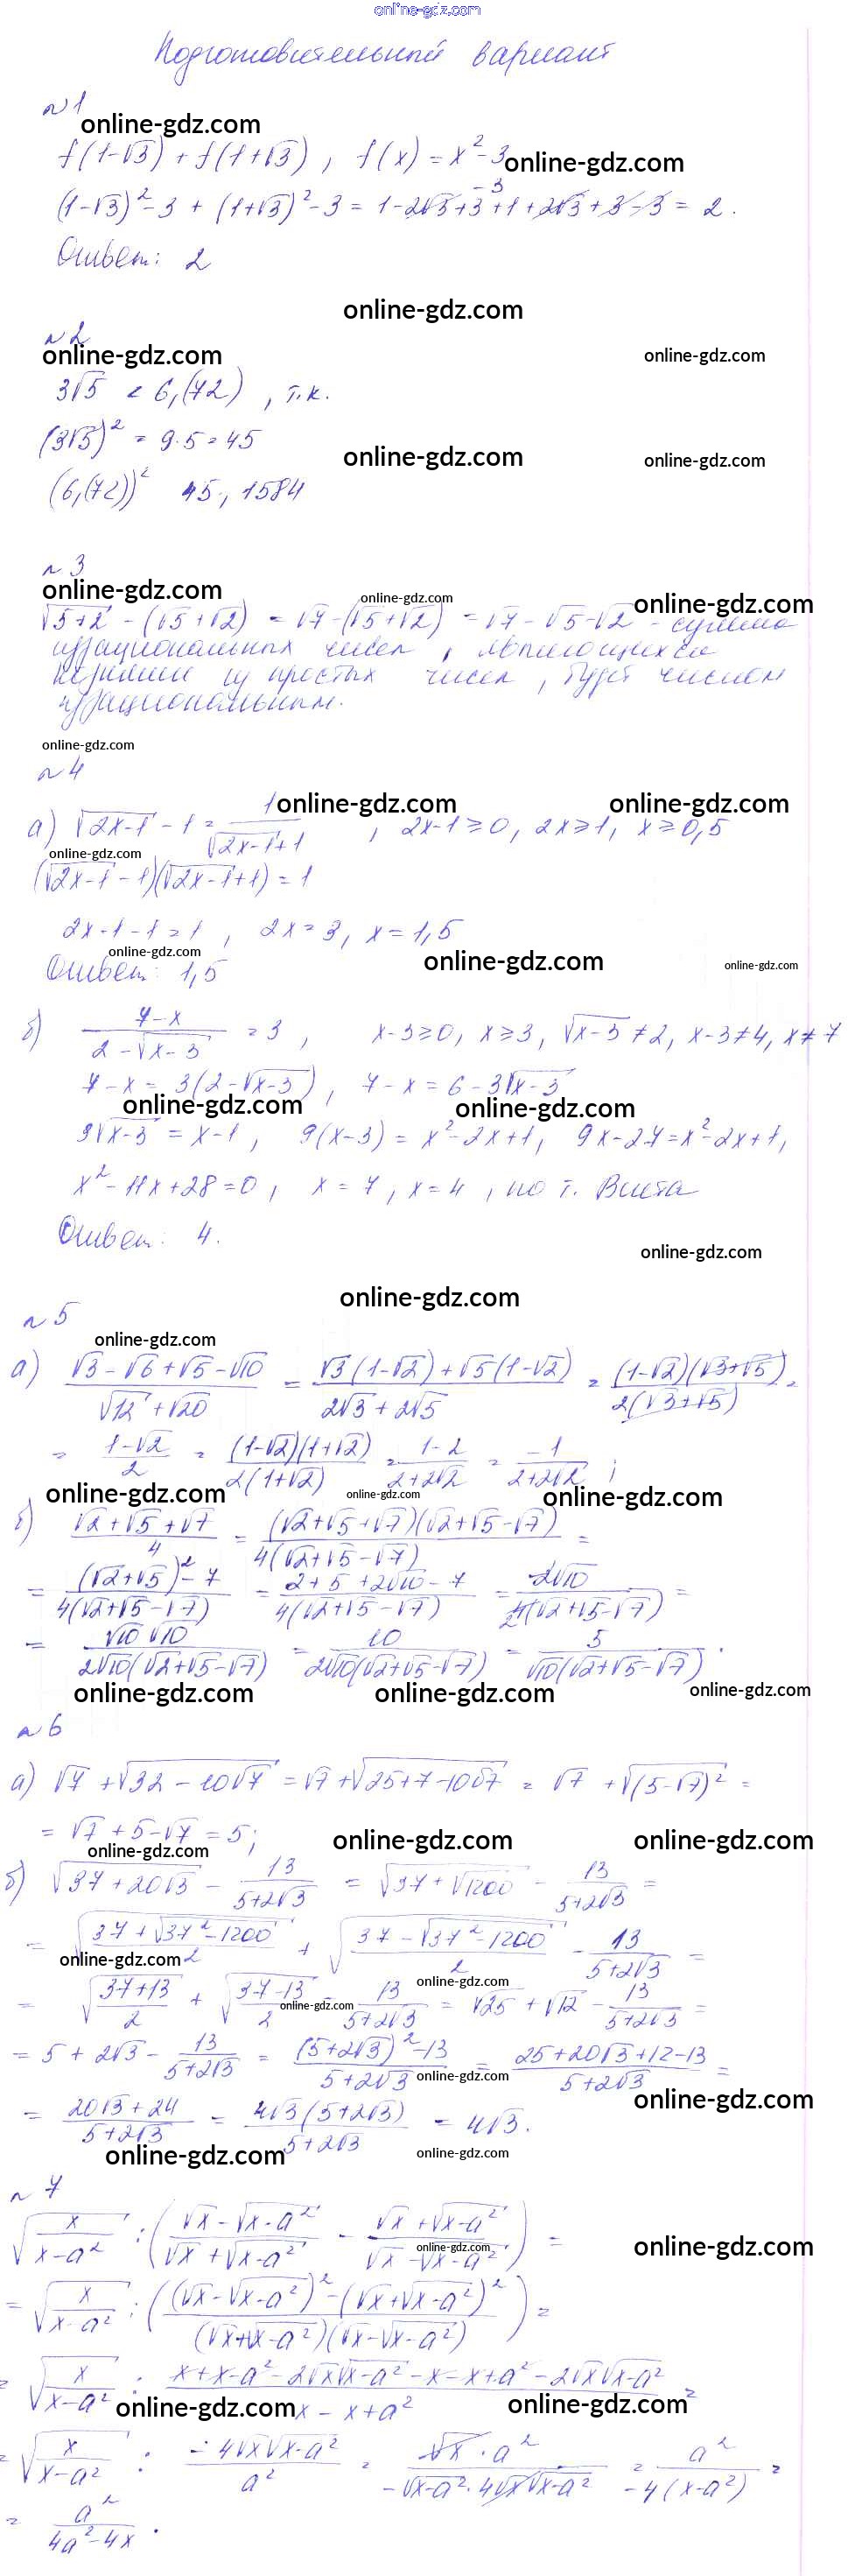 online-gdz.com
Подготовительный вариант
№1
online-gdz.com
f(1-√3) + f(1+√3), f(x) = x²-3
online-gdz.com
(1-√3)²-3 + (1+√3)²-3 = 1-2√3+3-3+1+2√3+3-3 = 2.
Ответ: 2
online-gdz.com
№2
online-gdz.com online-gdz.com
3√5 < 6,(72), т.к.
(3√5)² = 9·5=45
online-gdz.com online-gdz.com
(6,(72))² 45, 1584
№3
online-gdz.com online-gdz.com online-gdz.com
√5+2 - (√5+√2) = √7-(√5+√2) = √7-√5-√2 - сумма
иррациональных чисел, являющихся
корнями из простых чисел, будет числом
иррациональным.
online-gdz.com
№4
online-gdz.com online-gdz.com
а) √(2x-1) - 1 = 1/(√(2x-1)+1), 2x-1≥0, 2x≥1, x≥0,5
online-gdz.com
(√(2x-1) - 1)(√(2x-1)+1) = 1
2x-1-1=1, 2x=3, x=1,5
online-gdz.com online-gdz.com online-gdz.com
Ответ: 1,5
б) (7-x)/(2-√(x-3)) = 3, x-3≥0, x≥3, √(x-3)≠2, x-3≠4, x≠7
7-x = 3(2-√(x-3)), 7-x = 6-3√(x-3)
online-gdz.com online-gdz.com
3√(x-3) = x-1, 9(x-3) = x²-2x+1, 9x-27=x²-2x+1,
x²-11x+28=0, x=7, x=4, по т. Виета
Ответ: 4.
online-gdz.com
online-gdz.com
№5
online-gdz.com
а) (√3-√6+√5-√10)/(√12+√20) = (√3(1-√2)+√5(1-√2))/(2√3+2√5) = ((1-√2)(√3+√5))/(2(√3+√5)) =
= (1-√2)/2 = ((1-√2)(1+√2))/(2(1+√2)) = (1-2)/(2+2√2) = -1/(2+2√2);
online-gdz.com online-gdz.com online-gdz.com
б) (√2+√5+√7)/4 = ((√2+√5+√7)(√2+√5-√7))/(4(√2+√5-√7)) =
= ((√2+√5)²-7)/(4(√2+√5-√7)) = (2+5+2√10-7)/(4(√2+√5-√7)) = 2√10/(4(√2+√5-√7)) =
= (√10√10)/(2√10(√2+√5-√7)) = 10/(2√10(√2+√5-√7)) = 5/(√10(√2+√5-√7)).
online-gdz.com online-gdz.com online-gdz.com
№6
а) √7+√(32-10√7) = √7+√(25+7-10√7) = √7+√((5-√7)²) =
= √7+5-√7 = 5;
online-gdz.com online-gdz.com online-gdz.com
б) √(37+20√3) - 13/(5+2√3) = √(37+√1200) - 13/(5+2√3) =
= √((37+√(37²-1200))/2) + √((37-√(37²-1200))/2) - 13/(5+2√3) =
online-gdz.com
= √((37+13)/2) + √((37-13)/2) - 13/(5+2√3) = √25 + √12 - 13/(5+2√3) =
online-gdz.com online-gdz.com
= 5+2√3 - 13/(5+2√3) = ((5+2√3)²-13)/(5+2√3) = (25+20√3+12-13)/(5+2√3) =
online-gdz.com online-gdz.com
= (20√3+24)/(5+2√3) = (4√3(5+2√3))/(5+2√3) = 4√3.
online-gdz.com online-gdz.com
№7
√(x/(x-a²)) : ((√x-√(x-a²))/(√x+√(x-a²)) - (√x+√(x-a²))/(√x-√(x-a²))) =
online-gdz.com online-gdz.com
= √(x/(x-a²)) : (((√x-√(x-a²))²-(√x+√(x-a²))²)/((√x+√(x-a²))(√x-√(x-a²)))) =
= √(x/(x-a²)) : (x+x-a²-2√x√(x-a²)-x-x+a²-2√x√(x-a²))/(x-x+a²) =
online-gdz.com online-gdz.com
= √(x/(x-a²)) : (-4√x√(x-a²))/a² = (√x·a²)/(-√(x-a²)·4√x√(x-a²)) = a²/(-4(x-a²)) =
= a²/(4a²-4x).